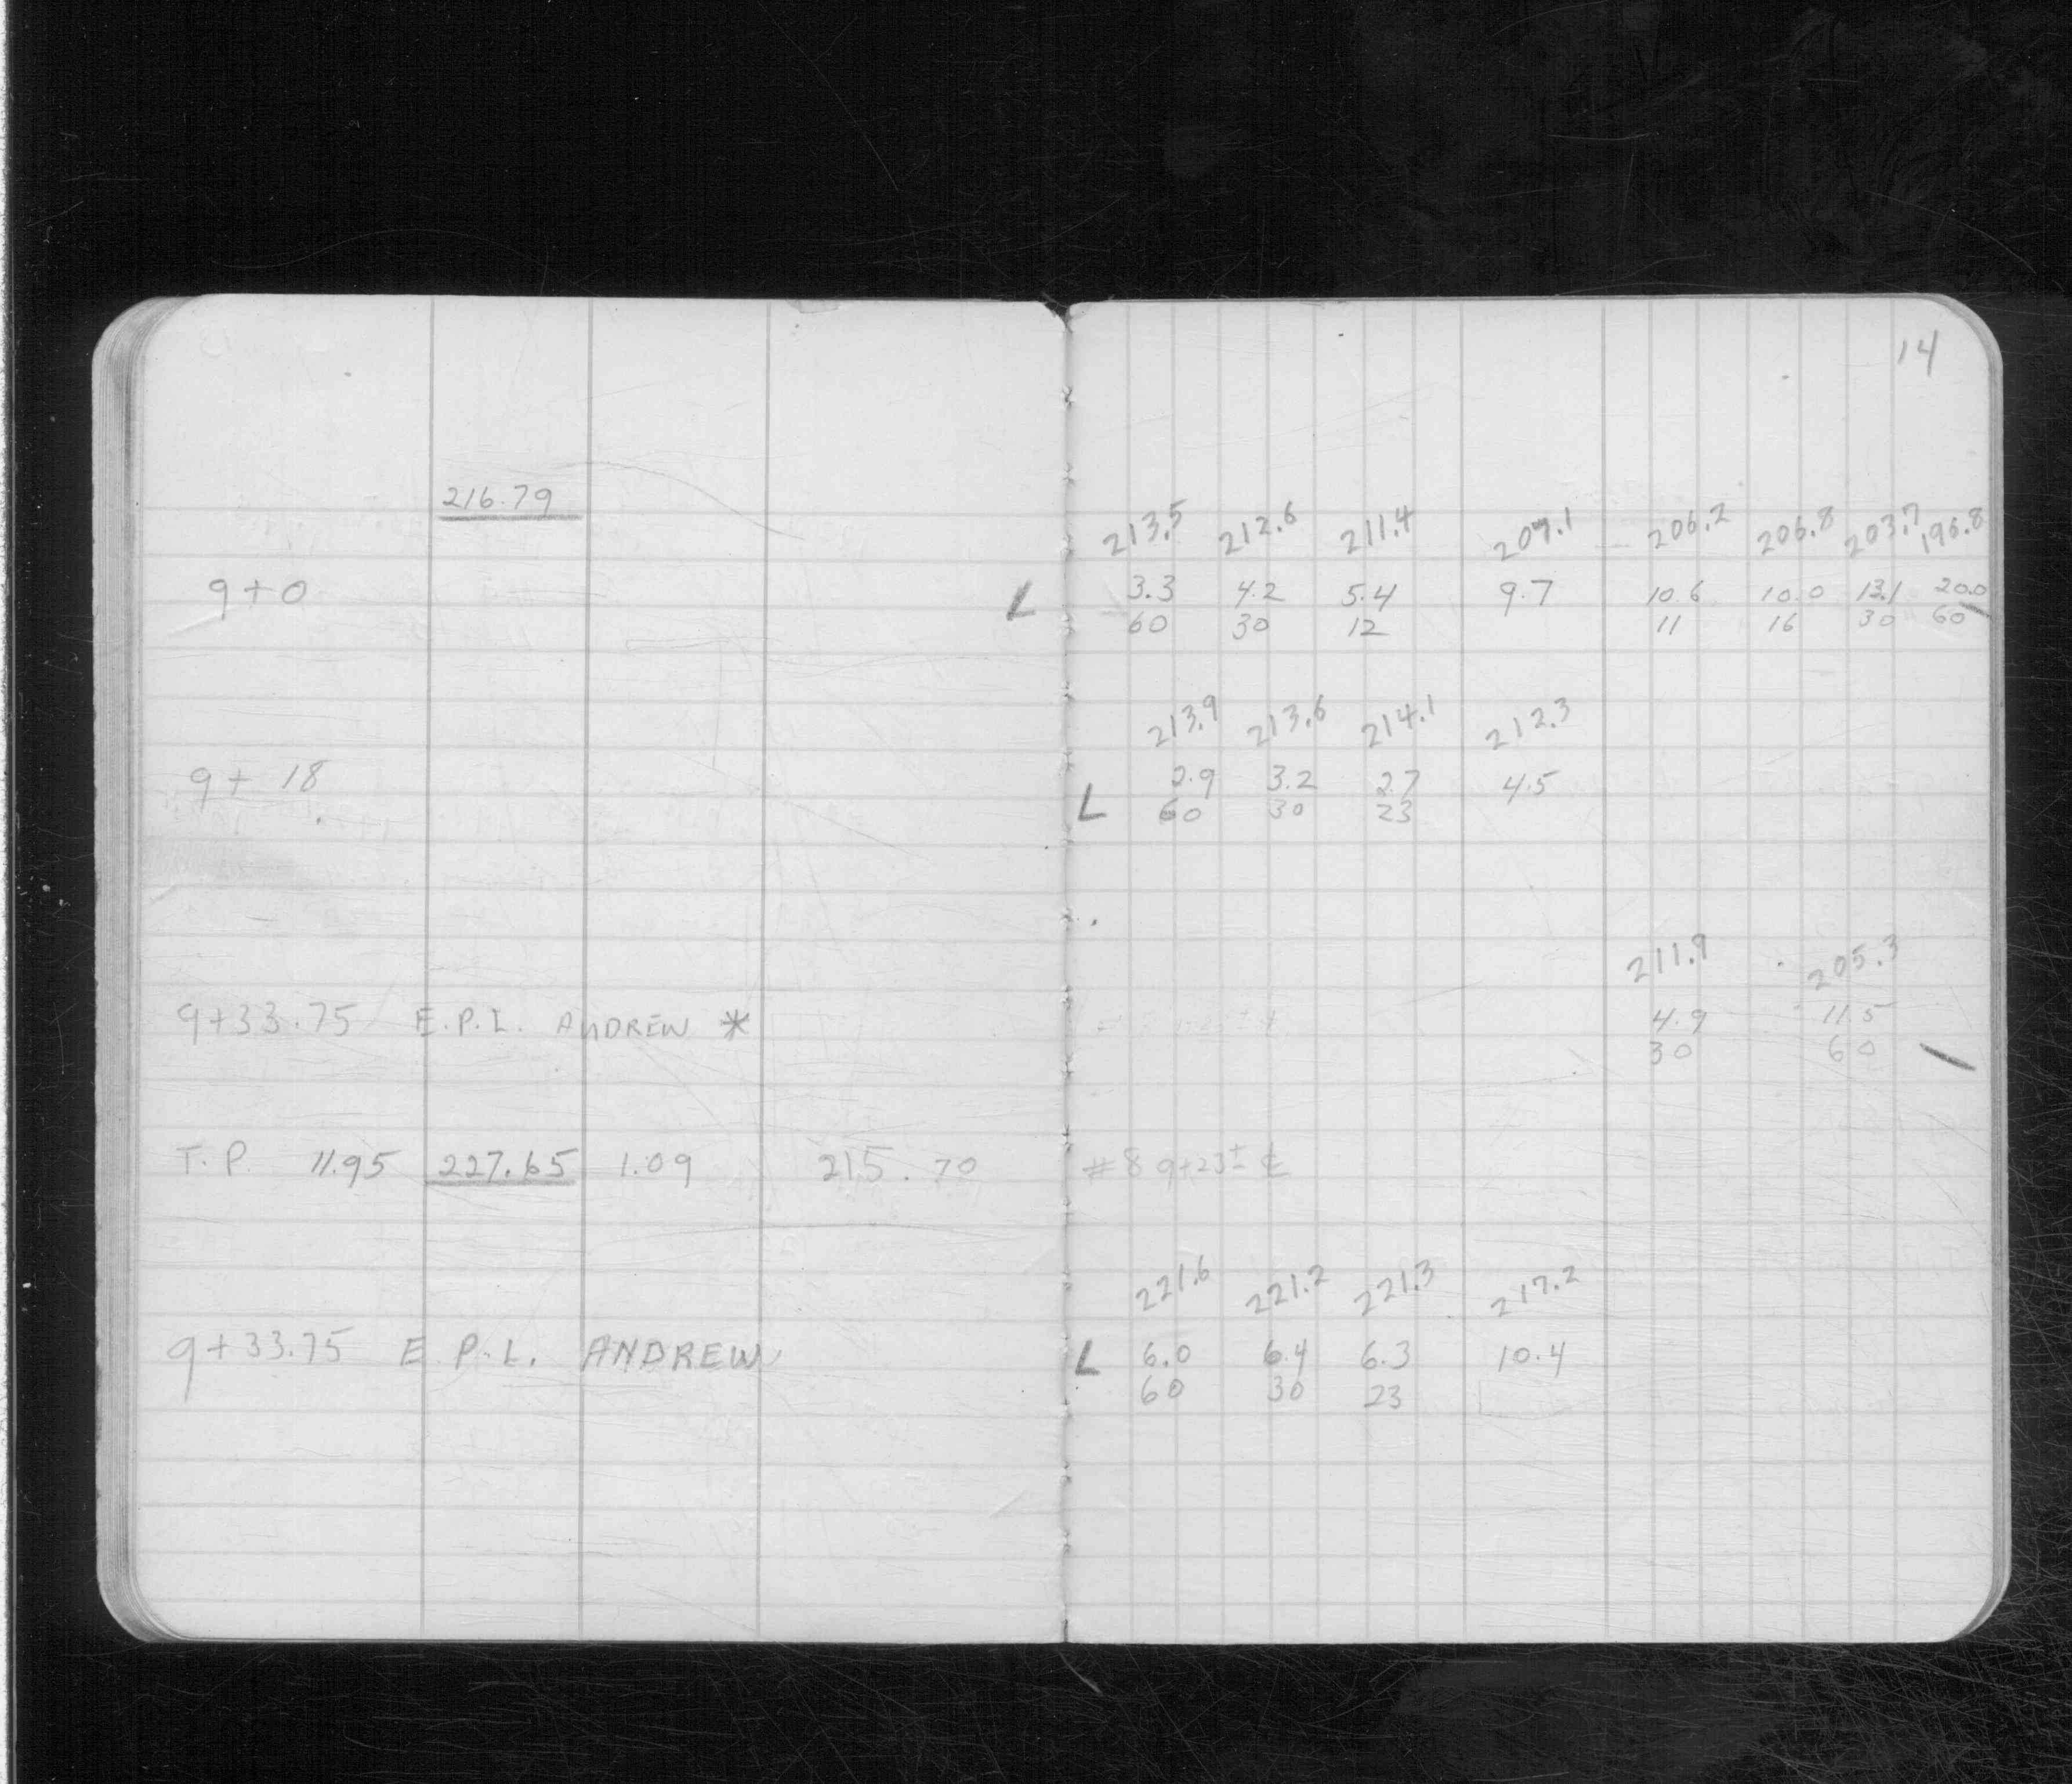 14
216.79
213.5 212.6 211.4 207.1 206.2 206.8 203.7 196.8
9+0 L 3.3 4.2 5.4 9.7 10.6 10.0 13.1 20.0
60 30 12 11 16 30 60
213.9 213.6 214.1 212.3
9+18 2.9 3.2 2.7 4.5
L 60 30 23
211.9 205.3
9+33.75 E.P.L. ANDREW * 4.9 11.5
30 60
T.P. 11.95 227.65 1.09 215.70 #8 9+23± ℄
221.6 221.2 221.3 217.2
9+33.75 E.P.L. ANDREW L 6.0 6.4 6.3 10.4
60 30 23